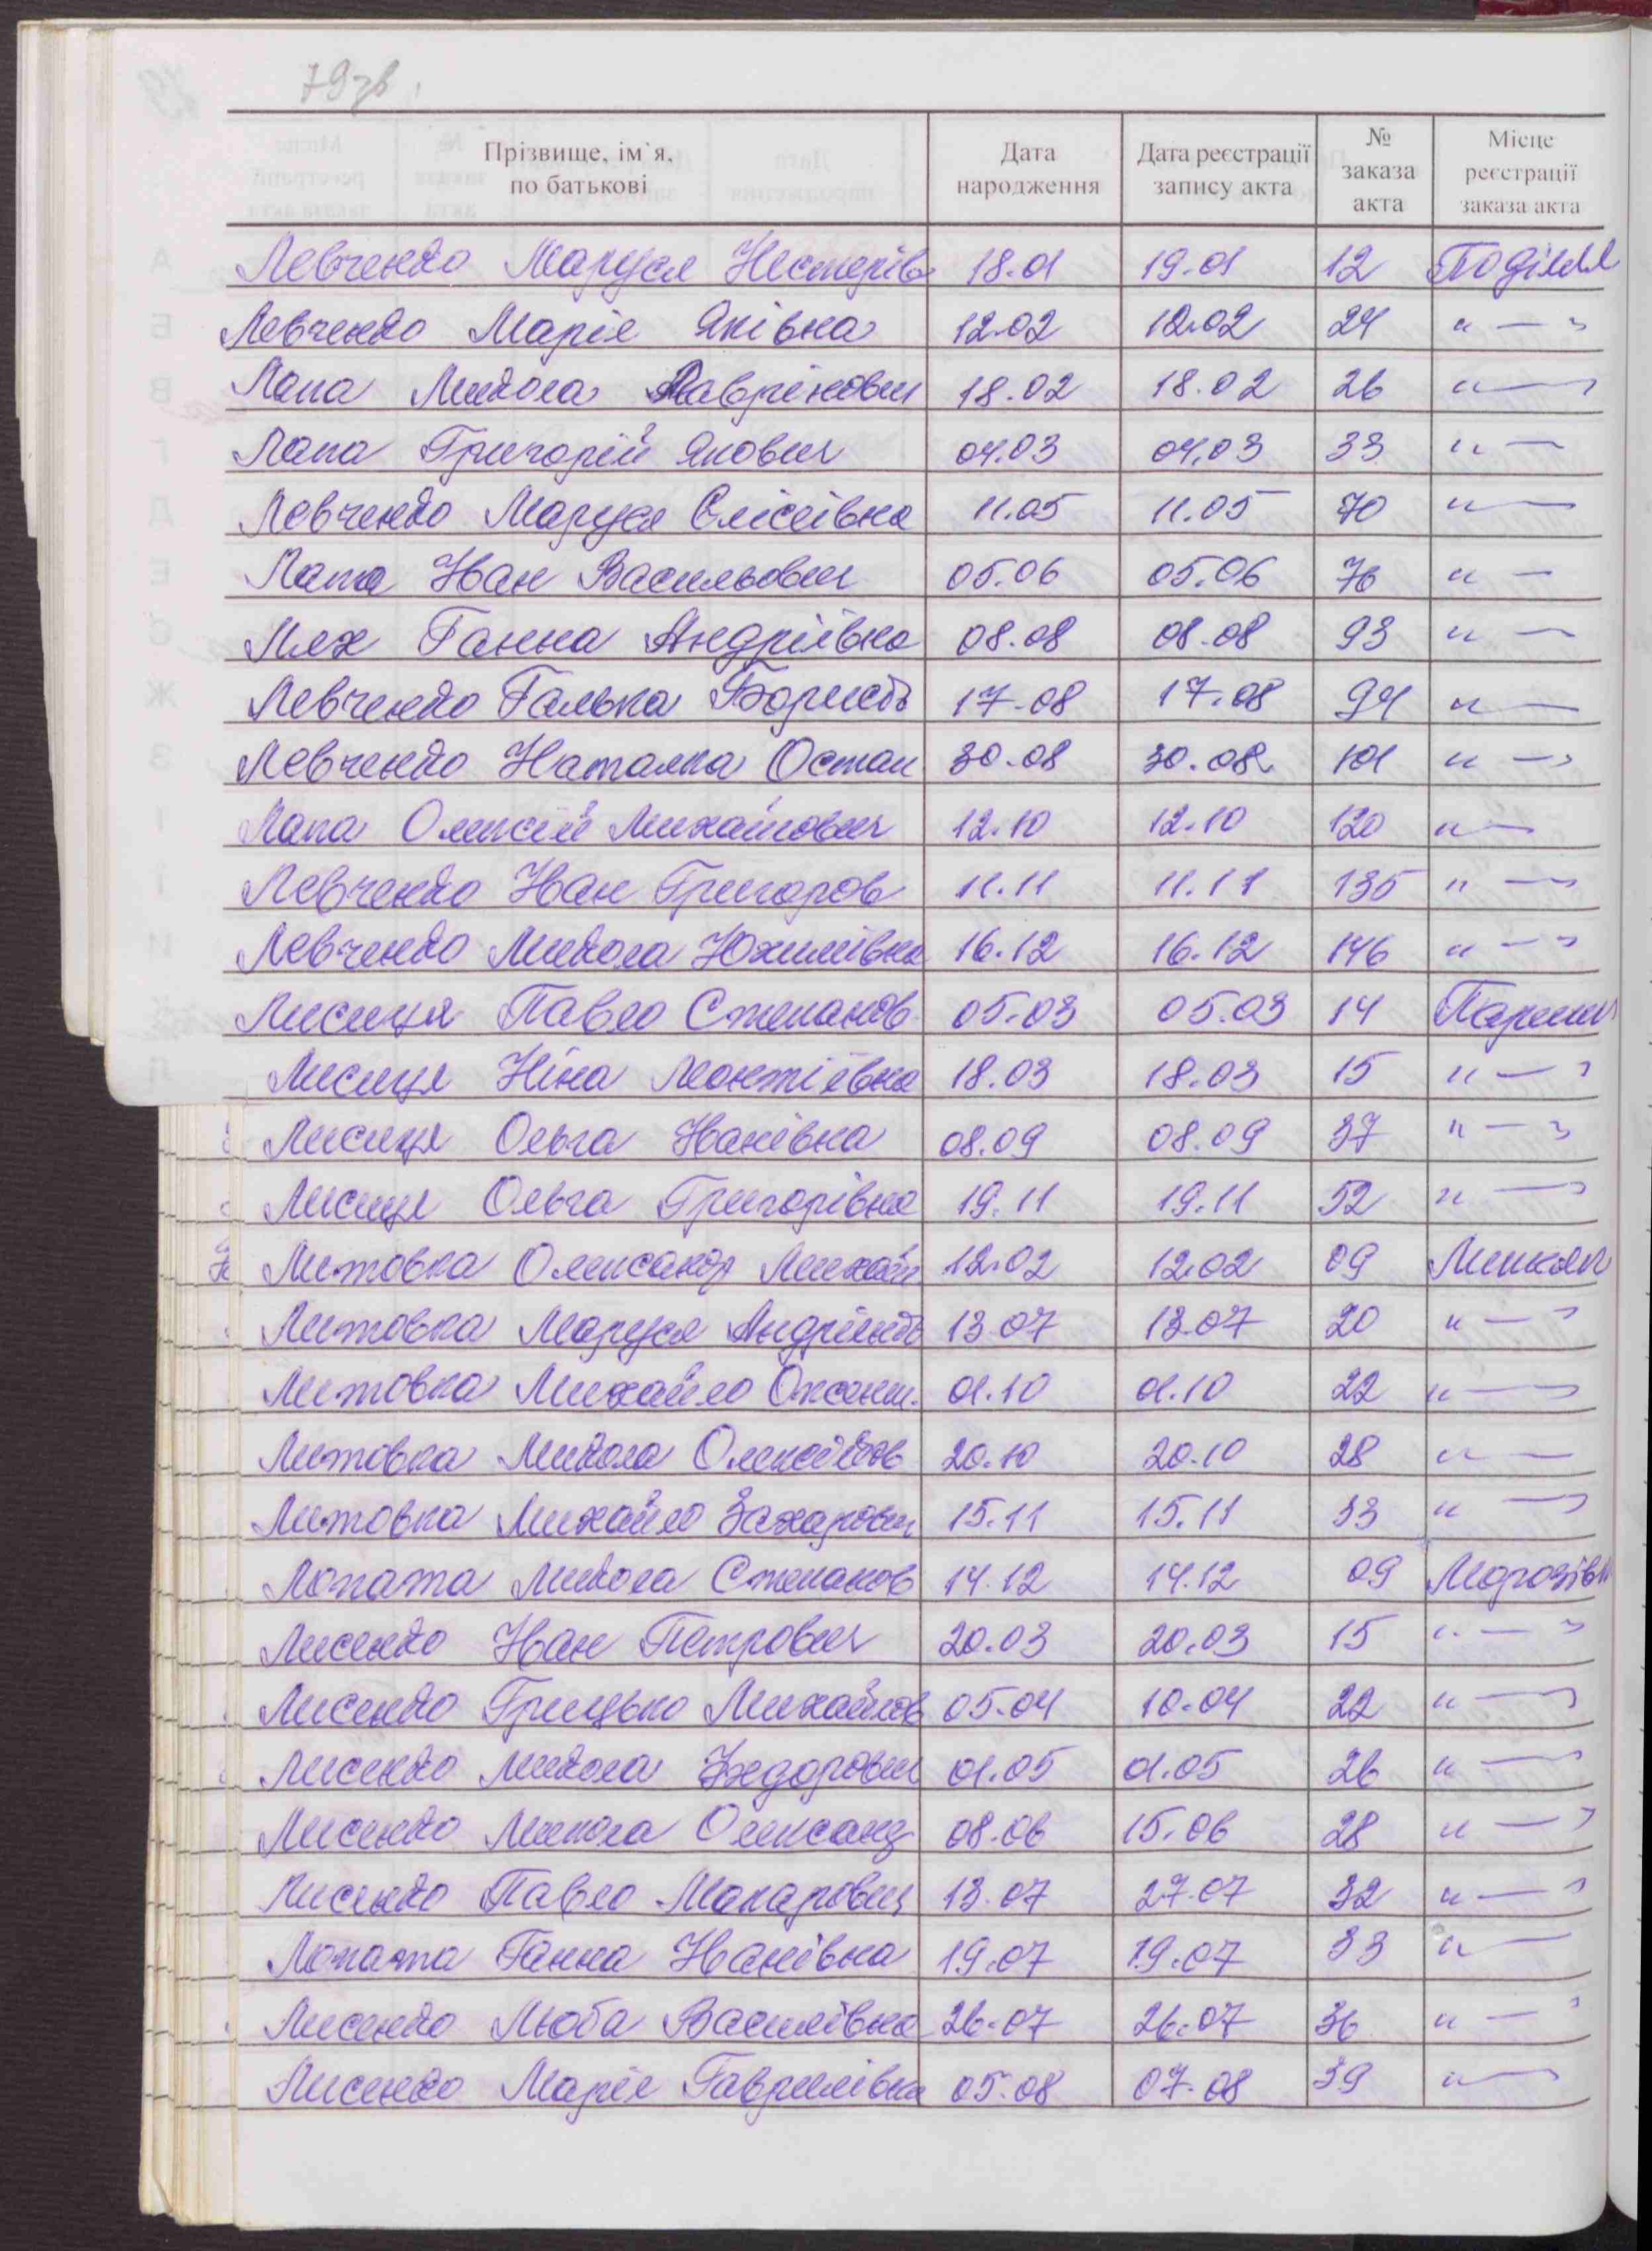 79зв.
Прізвище, ім`я, по батькові | Дата народження | Дата реєстрації запису акта | № заказа акта | Місце реєстрації заказа акта
Левченко Маруся Нестерів 18.01 19.01 12 Поділля
Левченко Марія Яківна 12.02 12.02 24 " — "
Лапа Микола Лаврінович 18.02 18.02 26 " — "
Лапа Григорій Якович 04.03 04.03 33 " —
Левченко Маруся Єлісеївна 11.05 11.05 70 " —
Лата Іван Васильович 05.06 05.06 76 " —
Лях Ганна Андріївна 08.08 08.08 93 " —
Левченко Галька Борисів 17.08 17.08 94 " —
Левченко Наталка Остап 30.08 30.08 101 " — "
Лапа Олексій Михайлович 12.10 12.10 120 " —
Левченко Іван Григоров 11.11 11.11 135 " — "
Левченко Микола Юхимівна 16.12 16.12 146 " — "
Лисиця Павло Степанов 05.03 05.03 14
Лисиця Ніна Леонтіївна 18.03 18.03 15 " — "
Лисиця Ольга Іванівна 08.09 08.09 37 " — "
Лисиця Ольга Григорівна 19.11 19.11 52 " — "
Литовка Олександр Михай 12.02 12.02 09
Литовка Маруся 13.07 13.07 20 " — "
Литовка Михайло 01.10 01.10 22 " — "
Литовка Микола 20.10 20.10 28 " —
Литовка Михайло Захарович 15.11 15.11 33 " — "
Лопата Микола Степанов 14.12 14.12 09 Морозівк
Лисенко Іван Петрович 20.03 20.03 15 " — "
Лисенко Грицько Михайлов 05.04 10.04 22 " — "
Лисенко Микола Федорович 01.05 01.05 26 " — "
Лисенко Микола Олександ 08.06 15.06 28 " — "
Лисенко Павло Макарович 13.07 27.07 32 " — "
Лопата Ганна Іванівна 19.07 19.07 33 " —
Лисенко Люба Василівна 26.07 26.07 36 " — "
Лисенко Марія Гаврилівна 05.08 07.08 39 " — "